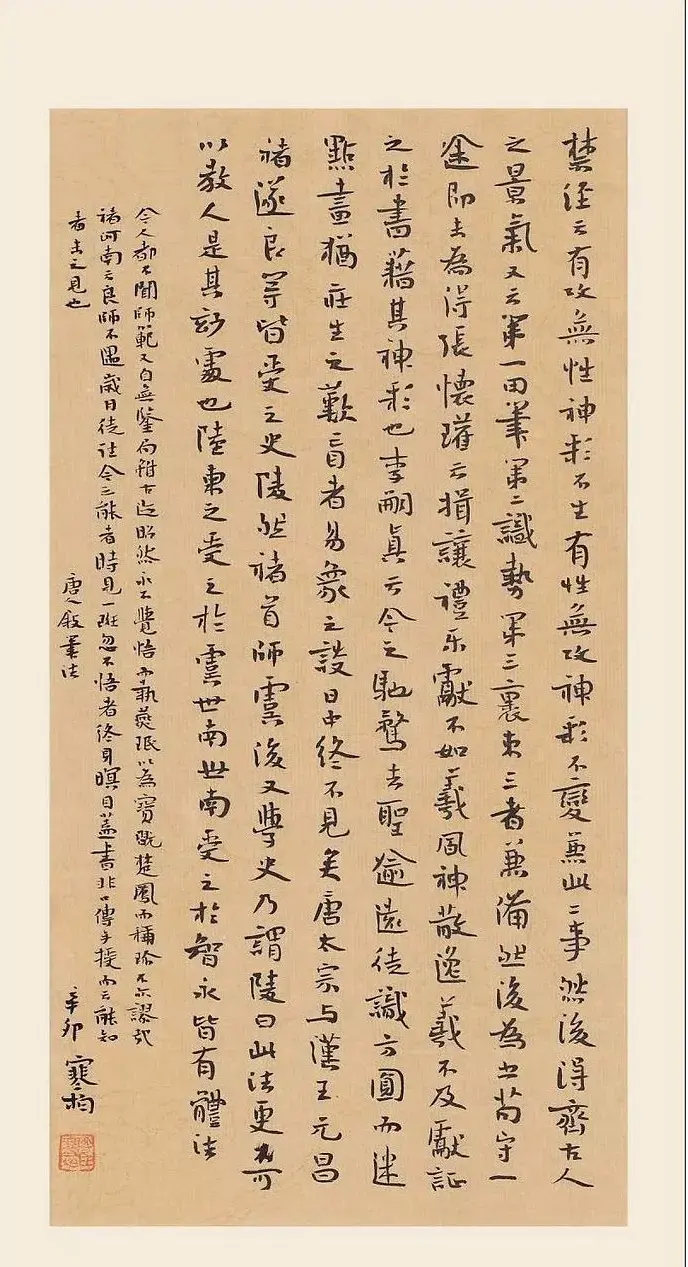 禁經云有攻無性神彩不生有性無攻神彩不變兼此二事然後得齊古人
之景氣又云第一用筆第二識勢第三裹束三者兼備然後為書苟守一
途即未為得張懷瓘云揖讓禮樂獻不如羲風神散逸羲不及獻証
之於書藉其神彩也李嗣真云今之馳騖去聖逾遠徒識方圓而迷
點畫猶莊生之歎盲者易象之談日中終不見矣唐太宗与漢王元昌
褚遂良等皆受之史陵然褚首師虞後又學史乃謂陵曰此法更不可
以教人是其妙處也陸柬之受之於虞世南世南受之於智永皆有體法
今人都不聞師範又自無鑒局雖古迹昭然永不覺悟而執燕珉以為寶翫楚鳳而稱珍不亦謬哉
褚河南云良師不遇歲月徒往今之能者時見一斑忽不悟者終身瞑目蓋書非口傳手授而云能知
者未之見也
唐人敘筆法
辛卯
寒柏